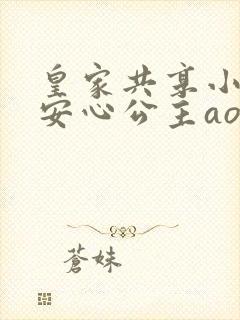 皇家共享小
安心公主ao
蒼妹